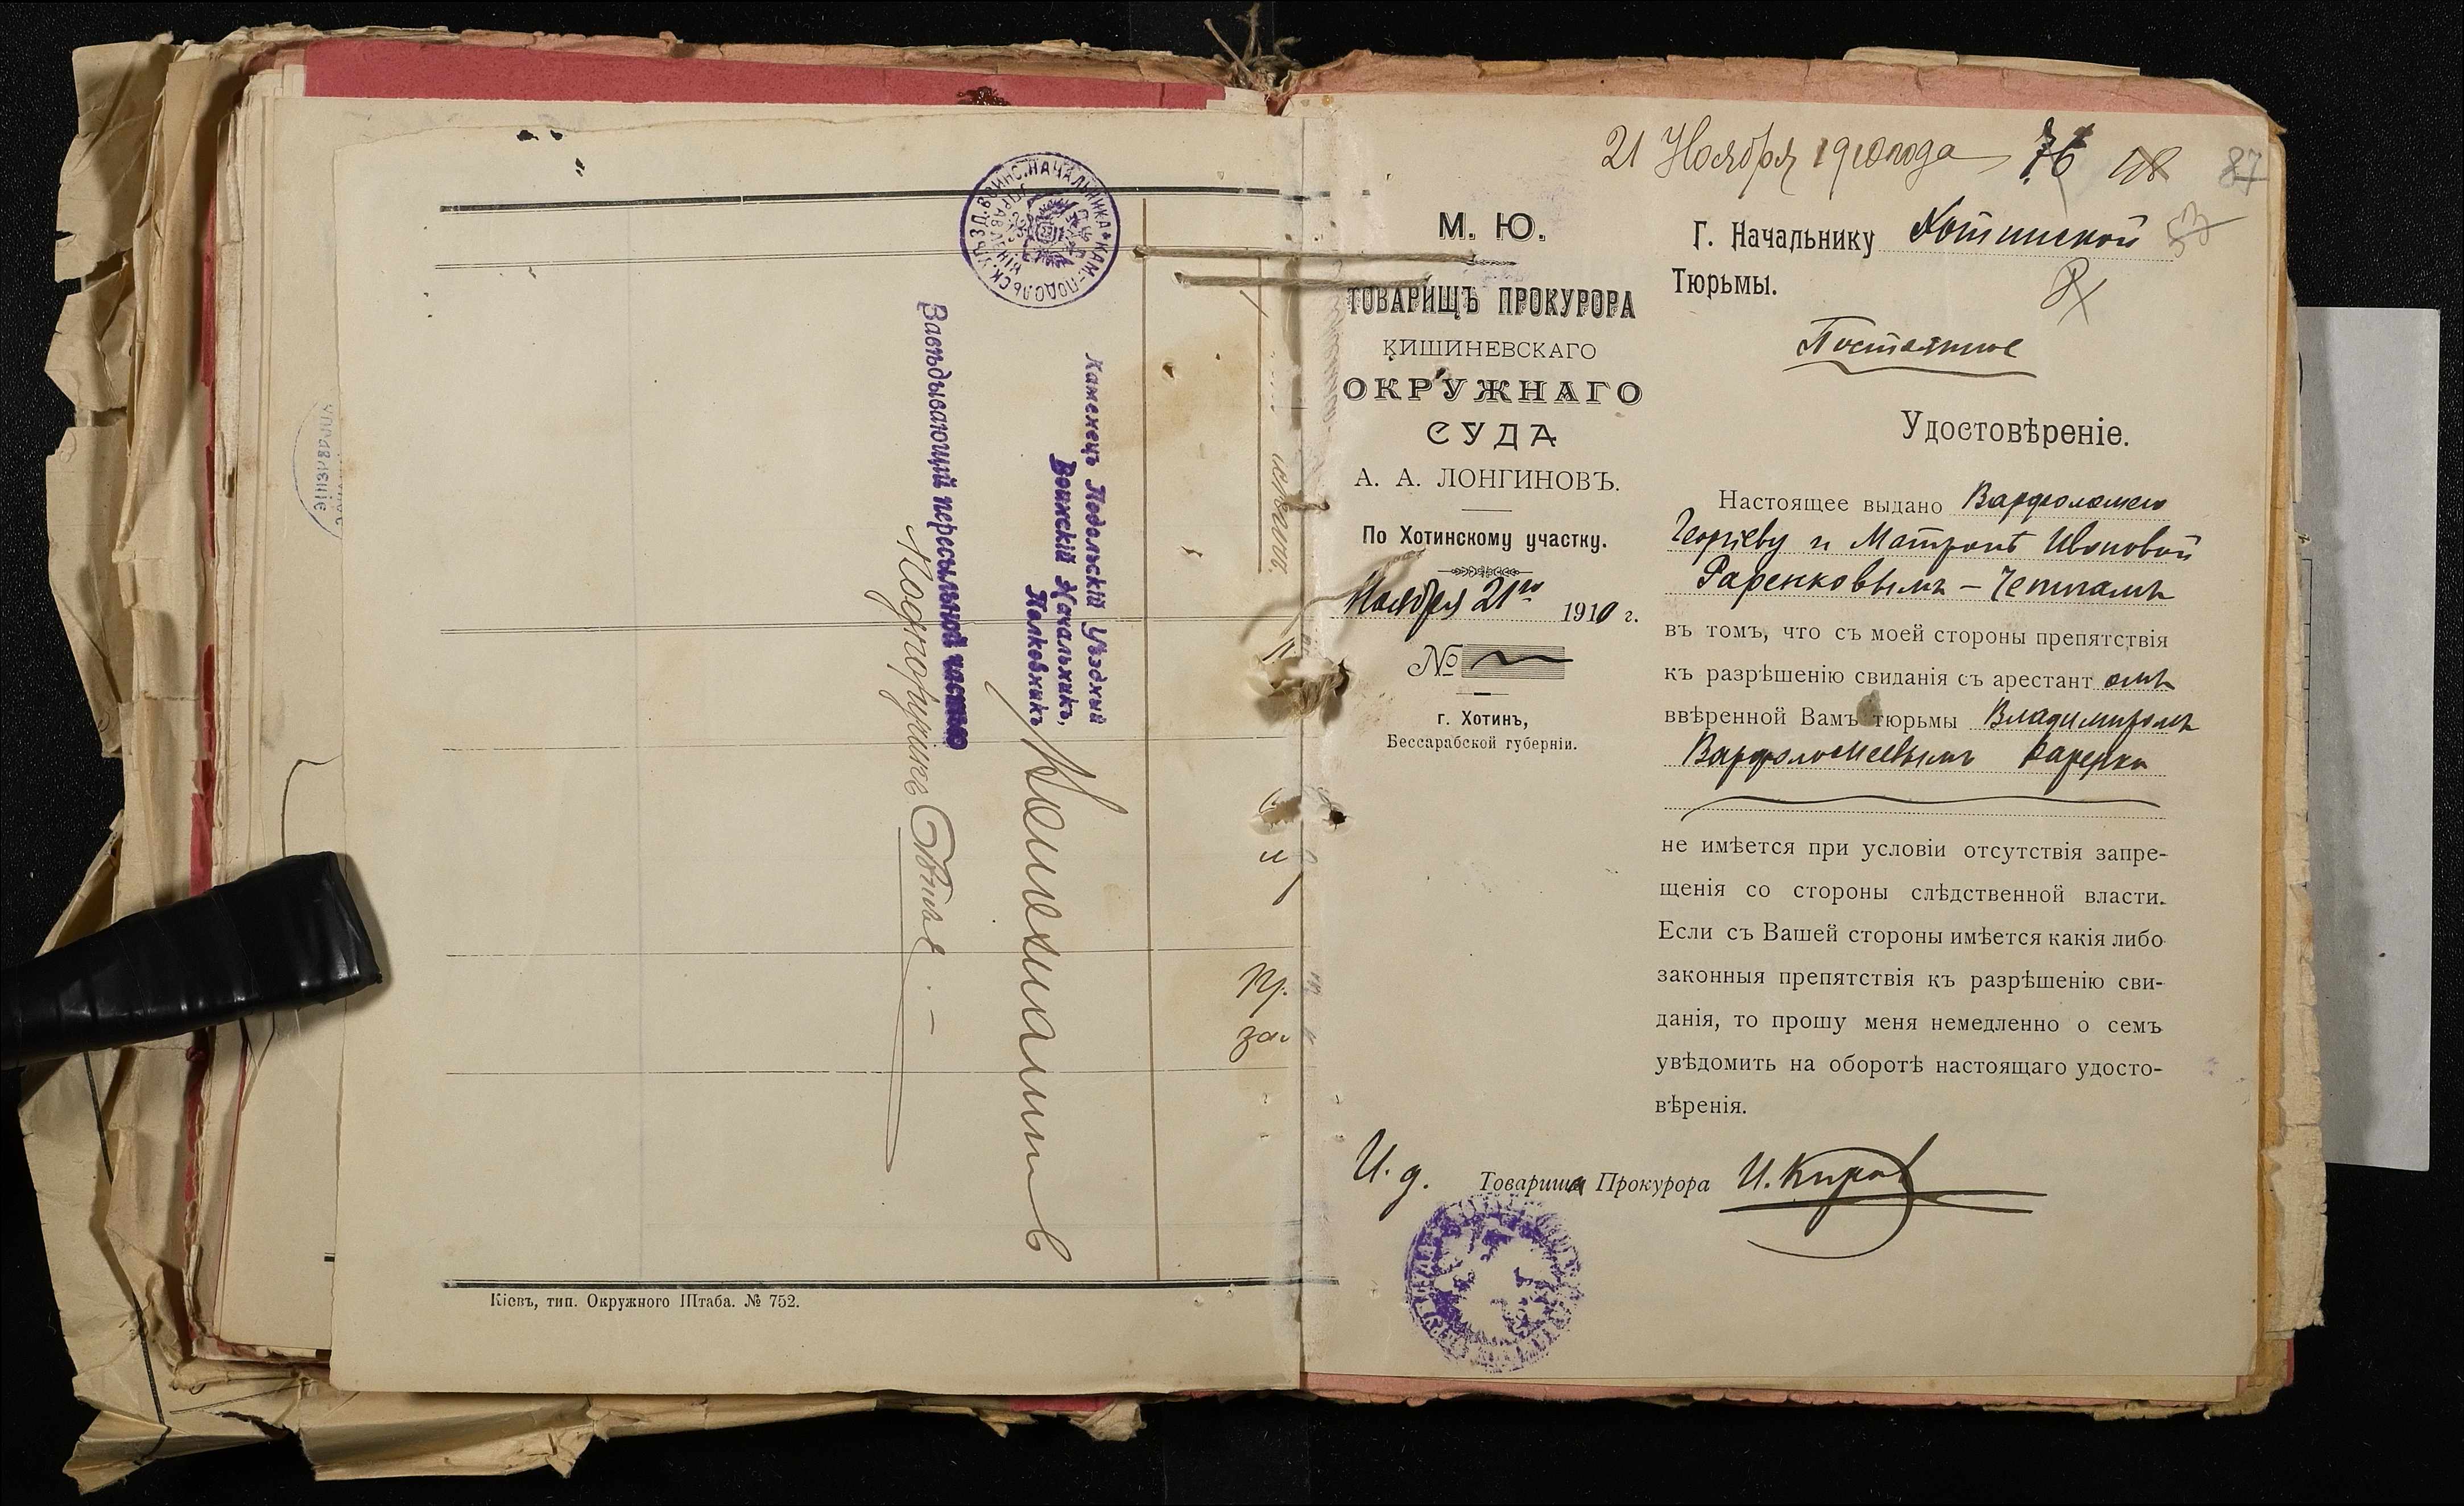 УѢЗД. ВОИНС. НАЧАЛЬНИКА КАМ.-ПОДОЛЬСК.
УПРАВЛЕНІЕ
Каменецъ Подольскій Уѣздный
Воинскій Начальникъ,
Полковникъ
Завѣдывающій пересыльной частью
Подпоручикъ
пр.
Кіевъ, тип. Окружного Штаба. № 752.
21 Ноября 1910 года 76 87
М. Ю.
ТОВАРИЩЪ ПРОКУРОРА
КИШИНЕВСКАГО
ОКРУЖНАГО
СУДА
А. А. ЛОНГИНОВЪ.
По Хотинскому участку.
Ноября 21го 1910 г.
№
г. Хотинъ,
Бессарабской губерніи.
Г. Начальнику Хотинской
Тюрьмы.
Постоянное
Удостовѣреніе.
Настоящее выдано Варфоломею
Георгіеву и Матронѣ Ивановой
Раренковымъ – Чепигамъ
въ томъ, что съ моей стороны препятствія
къ разрѣшенію свиданія съ арестант омъ
ввѣренной Вамъ тюрьмы Владимиромъ
Варфоломеевымъ Раренко
не имѣется при условіи отсутствія запре-
щенія со стороны слѣдственной власти.
Если съ Вашей стороны имѣется какія либо
законныя препятствія къ разрѣшенію сви-
данія, то прошу меня немедленно о семъ
увѣдомить на оборотѣ настоящаго удосто-
вѣренія.
И. д. Товарища Прокурора И. Киров